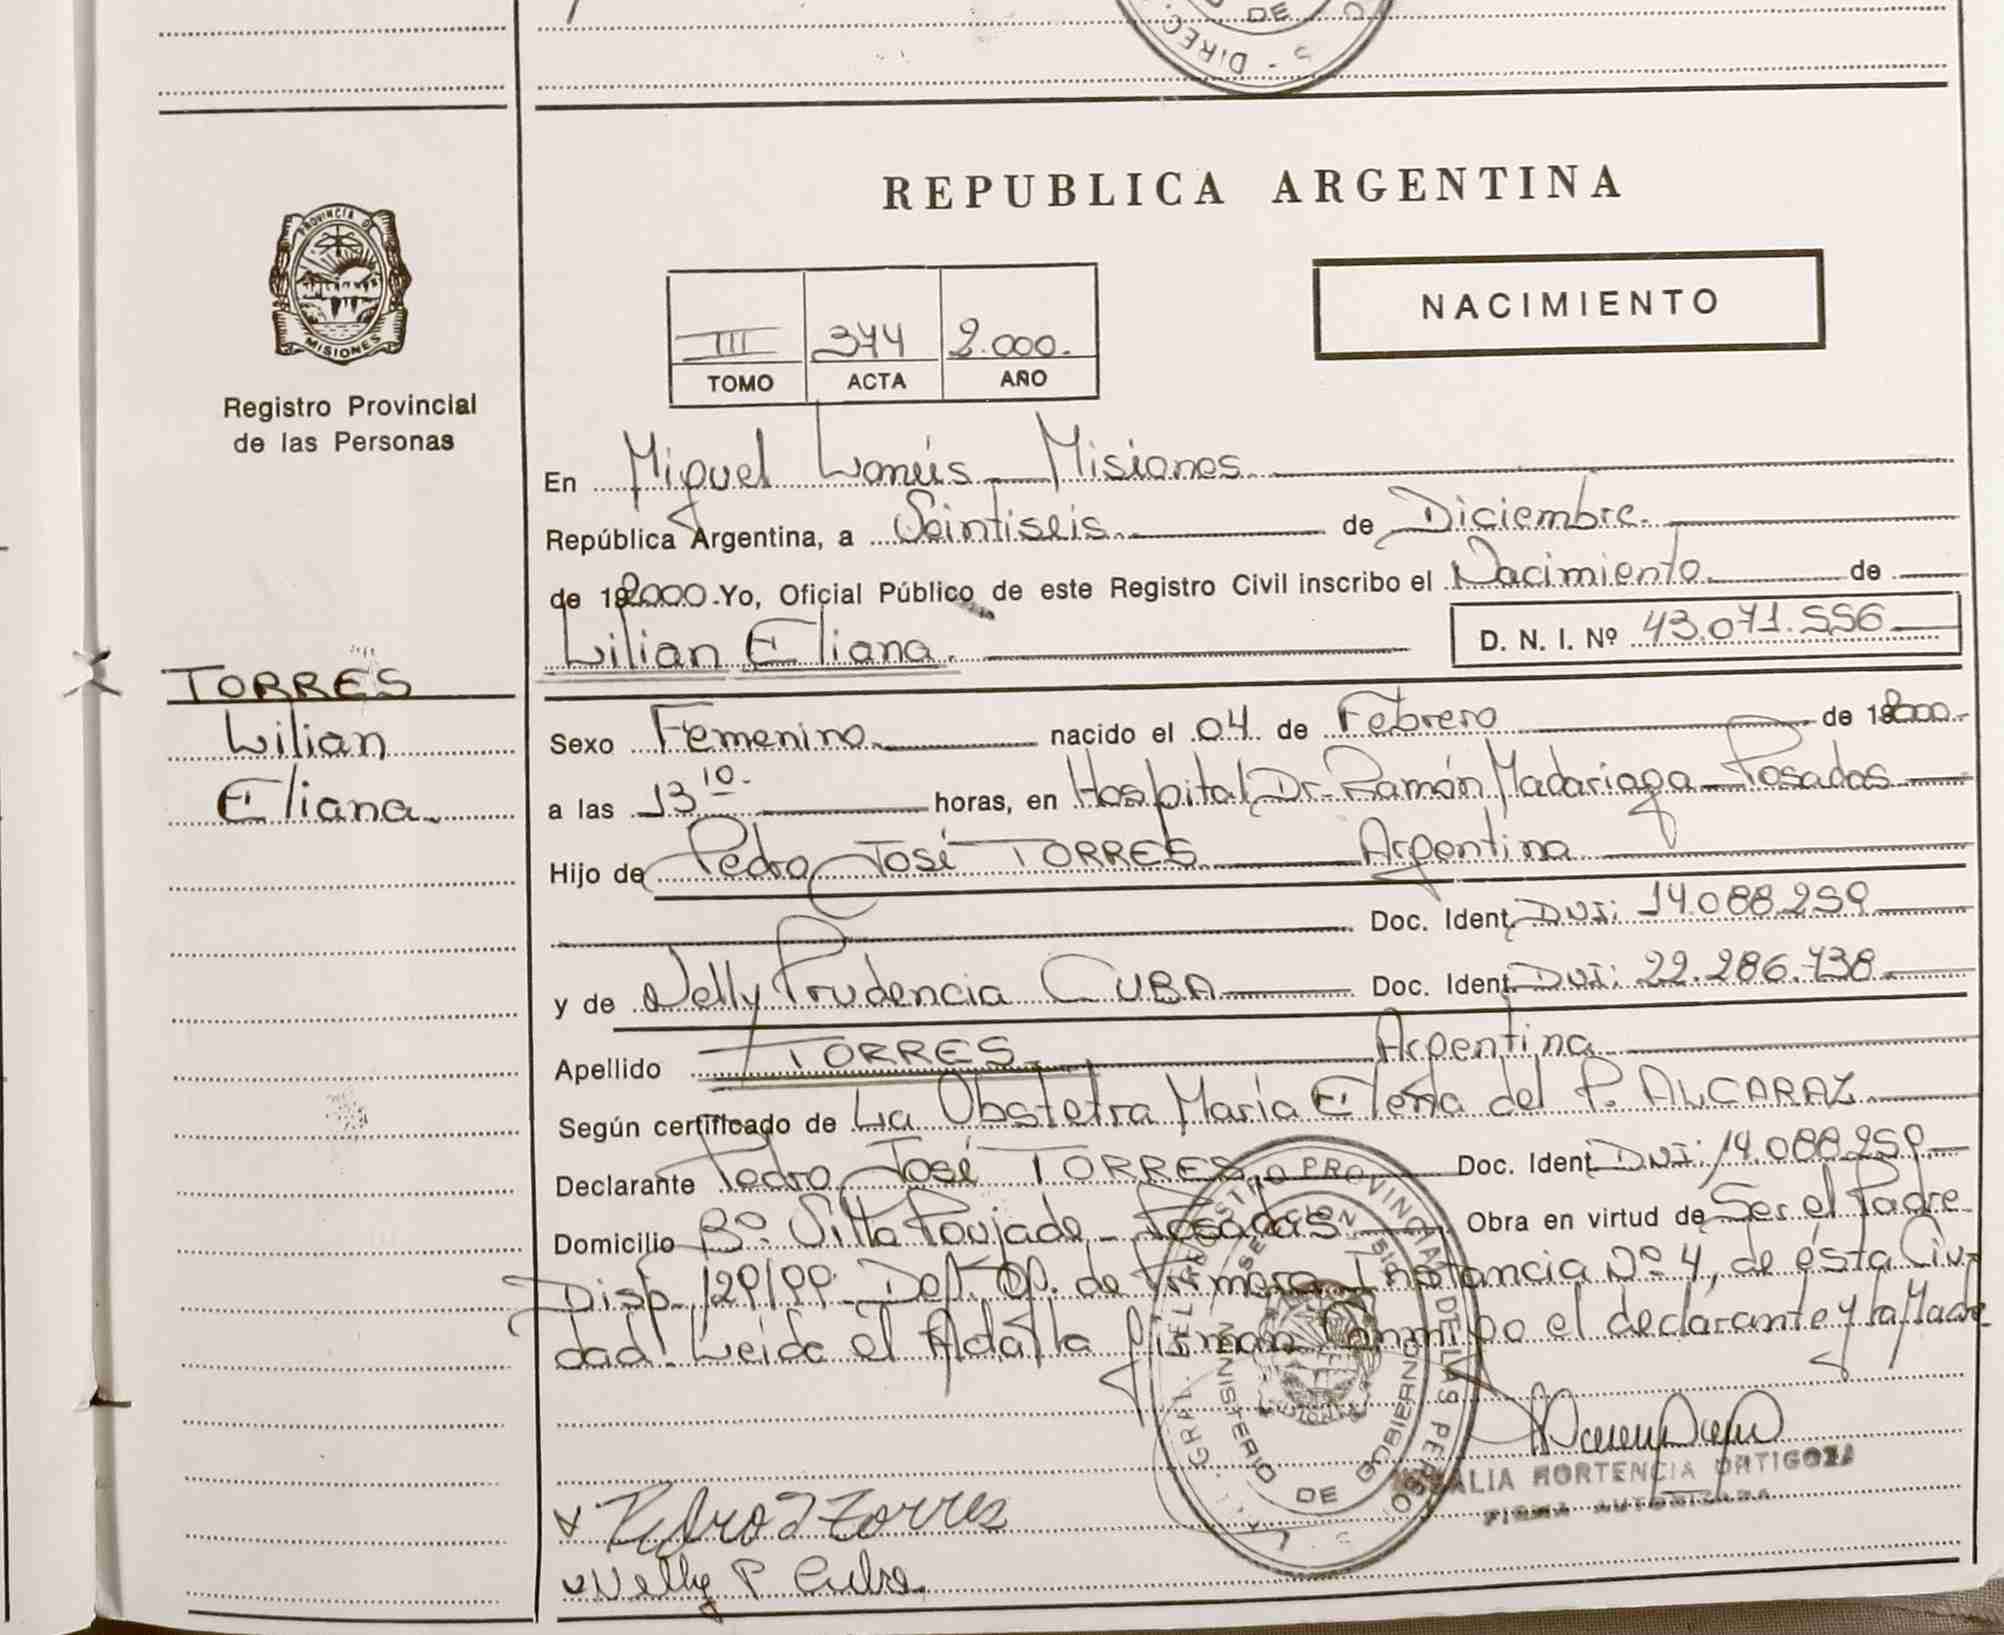 DIREC
DE
REPUBLICA ARGENTINA
PROVINCIA DE
MISIONES
Registro Provincial
de las Personas
NACIMIENTO
III 344 2.000.
TOMO ACTA AÑO
En Miguel Lanús Misiones
República Argentina, a Seintiseis de Diciembre.
de 192000. Yo, Oficial Público de este Registro Civil inscribo el Nacimiento de
Lilian Eliana. D. N. I. Nº 43.071.556
TORRES
Lilian
Eliana
Sexo Femenino nacido el 04 de Febrero de 192000
a las 13 10 horas, en Hospital Dr. Ramón Madariaga Posadas
Hijo de Pedro José TORRES Argentina
Doc. Ident. DNI: 14.088.259
y de Nelly Prudencia CUBA Doc. Ident. DNI: 22.286.738
Apellido TORRES Argentina
Según certificado de La Obstetra María Elena del P. ALCARAZ
Declarante Pedro José TORRES Doc. Ident. DNI: 14.088.259
Domicilio Bº. Villa Poujade - Posadas Obra en virtud de Ser el Padre
Disp. 129/99 Del. Op. de Primera Instancia Nº 4, de ésta Ciu-
dad. Leida el Acta, la firman conmigo el declarante y la Madre
REGISTRO PROVINCIAL DE LAS PERSONAS
MINISTERIO DE GOBIERNO
HORTENCIA ORTIGOZA
FIRMA AUTORIZADA
Pedro J Torres
Nelly P Cuba